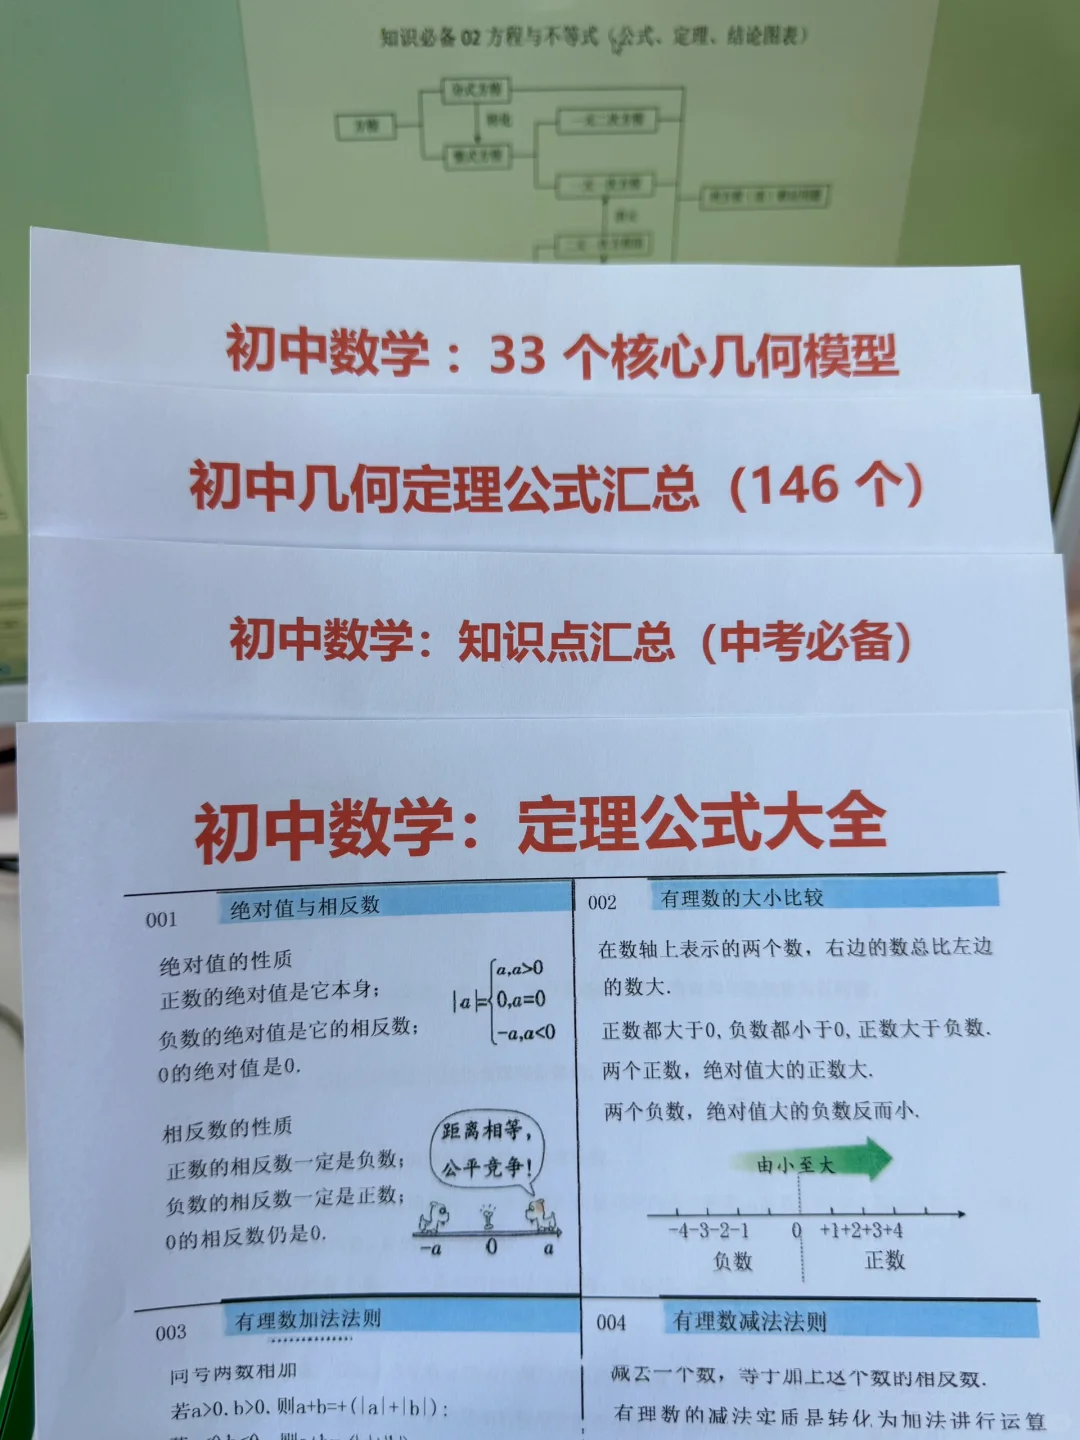 知识必备02 方程与不等式（公式、定理、结论图表）
分式方程
方程
转化
一元二次方程
整式方程
一元一次方程
初中数学：33 个核心几何模型
初中几何定理公式汇总（146 个）
初中数学：知识点汇总（中考必备）
初中数学：定理公式大全
001 绝对值与相反数
绝对值的性质
正数的绝对值是它本身；
负数的绝对值是它的相反数；
0的绝对值是0.
|a|={a,a>0
0,a=0
-a,a<0
相反数的性质
正数的相反数一定是负数；
负数的相反数一定是正数；
0的相反数仍是0.
距离相等，
公平竞争！
-a 0 a
002 有理数的大小比较
在数轴上表示的两个数，右边的数总比左边
的数大.
正数都大于0,负数都小于0,正数大于负数.
两个正数，绝对值大的正数大.
两个负数，绝对值大的负数反而小.
由小至大
-4-3-2-1 0 +1+2+3+4
负数 正数
003 有理数加法法则
同号两数相加
若a>0.b>0.则a+b=+(|a|+|b|);
004 有理数减法法则
减去一个数，等于加上这个数的相反数.
有理数的减法实质是转化为加法进行运算